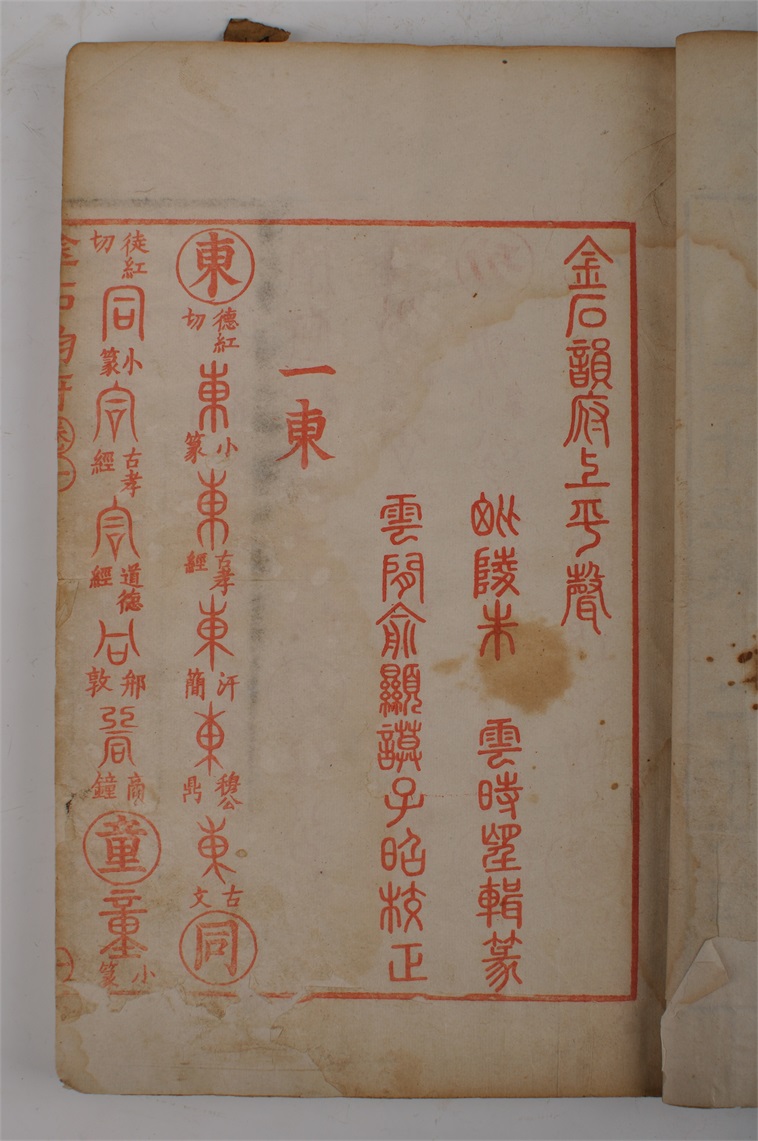 金石韻府上平聲
毗陵朱 雲時望輯篆
雲間俞顯謨子昭校正
一東
東 德紅切 東 小篆 東 古孝經 東 汗簡 東 穆公鼎 東 古文 同
徒紅切 同 小篆 同 古孝經 同 道德經 同 邢敦 同 商鐘 童 童 小篆
金石韵府 卷一 一